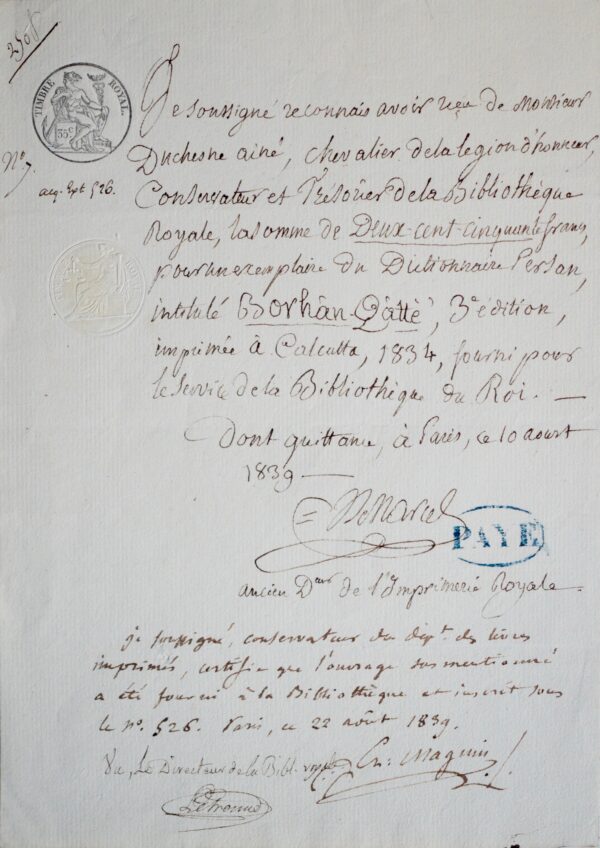 250f
TIMBRE ROYAL.
35c
N° 7
acq. Rpt 526.
Je soussigné reconnais avoir reçu de Monsieur
Duchesne ainé, Chevalier de la légion d'honneur,
Conservateur et Trésorier de la Bibliothèque
Royale, la somme de Deux-cent-cinquante francs,
pour un exemplaire du Dictionnaire Persan,
intitulé Borhân-Qâttè, 3e édition,
imprimée à Calcutta, 1834, fourni pour
le service de la Bibliothèque du Roi. —
Dont quittance, à Paris, ce 10 aoust
1839 —
= Marcel
PAYÉ
ancien Dteur de l'Imprimerie Royale.
je soussigné, conservateur du dépt. des livres
imprimés, certifie que l'ouvrage sus mentionné
a été fourni à la Bibliothèque et inscrit sous
le n°. 526. Paris, ce 22 août 1839.
Vu, Le Directeur de la Bibl. royale
Ch: Magnin
Letronne